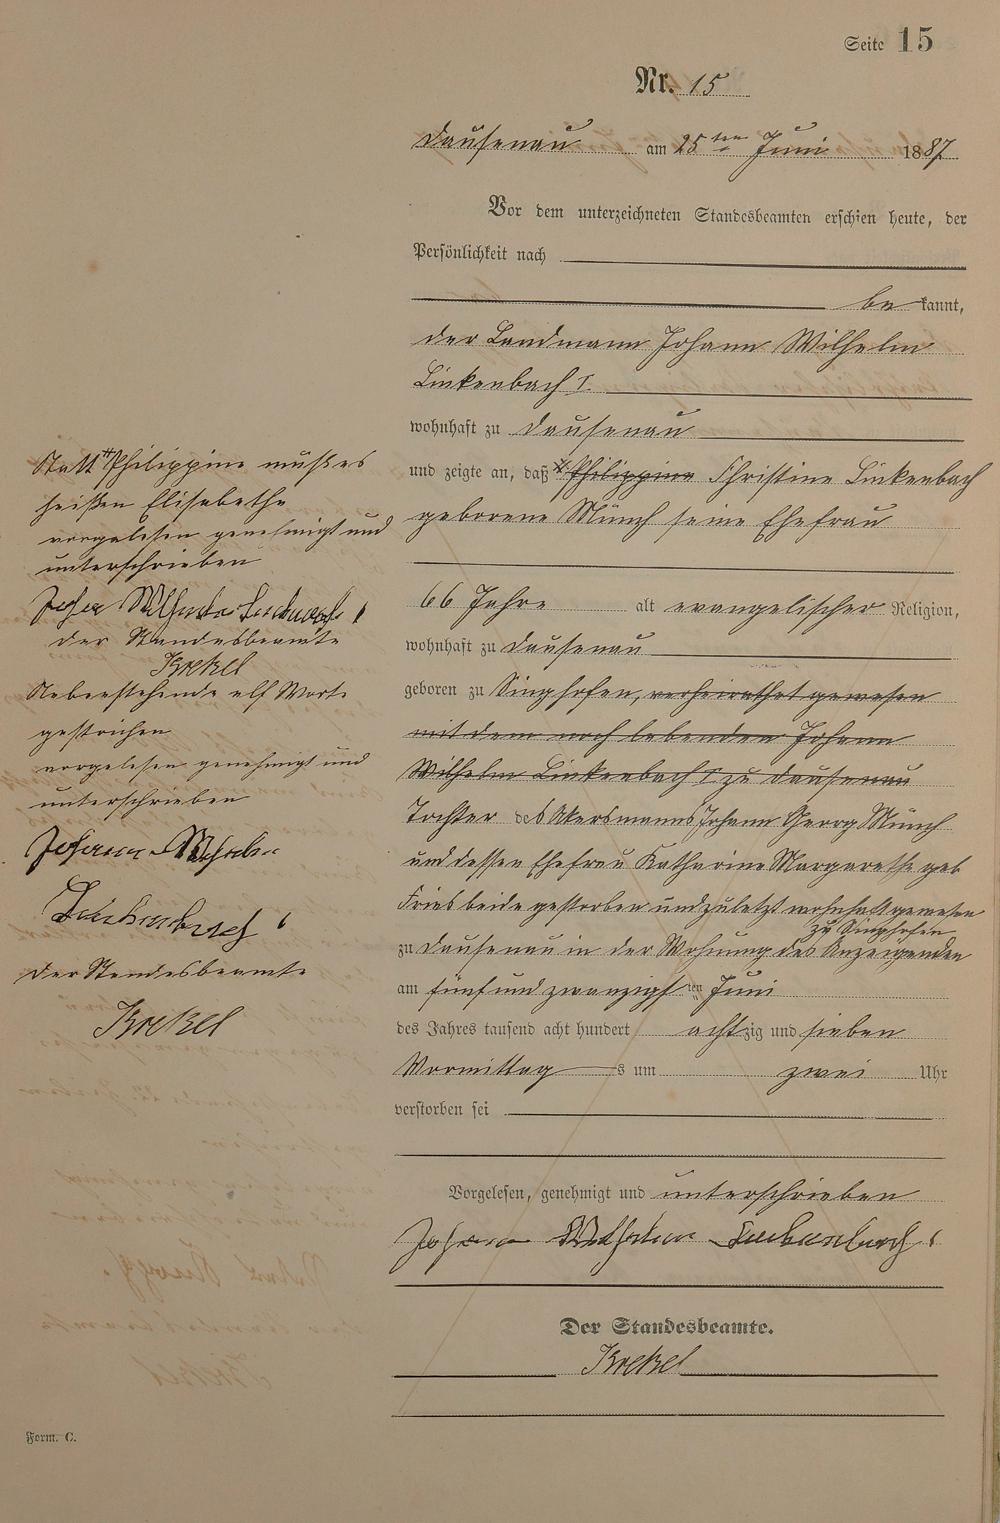 Seite 15
Nr. 15
Dausenau am 25ten Juni 1887
Vor dem unterzeichneten Standesbeamten erschien heute, der
Persönlichkeit nach
be kannt,
der Landmann Johann Wilhelm
Linkenbach I.
wohnhaft zu Dausenau
und zeigte an, daß Philippine Christine Linkenbach
geborene Münch seine Ehefrau
66 Jahre alt evangelischer Religion,
wohnhaft zu Dausenau
geboren zu Singhofen, verheirathet gewesen
mit dem noch lebenden Johann
Wilhelm Linkenbach I. zu Dausenau
Tochter des Akersmanns Johann Georg Münch
und dessen Ehefrau Katharine Margarethe geb
Fries beide gestorben und zuletzt wohnhaft gewesen
zu Singhofen
zu Dausenau in der Wohnung des Anzeigenden
am fünf und zwanzigsten Juni
des Jahres tausend acht hundert achtzig und sieben
Vormittags um zwei Uhr
verstorben sei
Vorgelesen, genehmigt und unterschrieben
Johann Wilhelm Linkenbach I
Der Standesbeamte.
Krekel
Statt Philippine muß es
heißen Elisabethe
vorgelesen genehmigt und
unterschrieben
Johann Wilhelm Linkenbach I
der Standesbeamte
Krekel
Nebenstehende elf Worte
gestrichen
vorgelesen genehmigt und
unterschrieben
Johann Wilhelm
Linkenbach I
Der Standesbeamte
Krekel
Form. C.